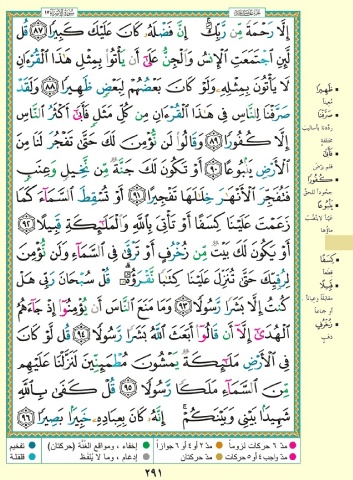 إِلَّا رَحْمَةً مِّن رَّبِّكَ ۚ إِنَّ فَضْلَهُ كَانَ عَلَيْكَ كَبِيرًا ﴿٨٧﴾ قُل
لَّئِنِ اجْتَمَعَتِ الْإِنسُ وَالْجِنُّ عَلَىٰ أَن يَأْتُوا بِمِثْلِ هَٰذَا الْقُرْءَانِ
لَا يَأْتُونَ بِمِثْلِهِ وَلَوْ كَانَ بَعْضُهُمْ لِبَعْضٍ ظَهِيرًا ﴿٨٨﴾ وَلَقَدْ
صَرَّفْنَا لِلنَّاسِ فِي هَٰذَا الْقُرْءَانِ مِن كُلِّ مَثَلٍ فَأَبَىٰ أَكْثَرُ النَّاسِ
إِلَّا كُفُورًا ﴿٨٩﴾ وَقَالُوا لَن نُّؤْمِنَ لَكَ حَتَّىٰ تَفْجُرَ لَنَا مِنَ
الْأَرْضِ يَنبُوعًا ﴿٩٠﴾ أَوْ تَكُونَ لَكَ جَنَّةٌ مِّن نَّخِيلٍ وَعِنَبٍ
فَتُفَجِّرَ الْأَنْهَٰرَ خِلَٰلَهَا تَفْجِيرًا ﴿٩١﴾ أَوْ تُسْقِطَ السَّمَاءَ كَمَا
زَعَمْتَ عَلَيْنَا كِسَفًا أَوْ تَأْتِيَ بِاللَّهِ وَالْمَلَٰئِكَةِ قَبِيلًا ﴿٩٢﴾
أَوْ يَكُونَ لَكَ بَيْتٌ مِّن زُخْرُفٍ أَوْ تَرْقَىٰ فِي السَّمَاءِ وَلَن نُّؤْمِنَ
لِرُقِيِّكَ حَتَّىٰ تُنَزِّلَ عَلَيْنَا كِتَٰبًا نَّقْرَؤُهُ ۗ قُلْ سُبْحَانَ رَبِّي هَلْ
كُنتُ إِلَّا بَشَرًا رَّسُولًا ﴿٩٣﴾ وَمَا مَنَعَ النَّاسَ أَن يُؤْمِنُوا إِذْ جَاءَهُمُ
الْهُدَىٰ إِلَّا أَن قَالُوا أَبَعَثَ اللَّهُ بَشَرًا رَّسُولًا ﴿٩٤﴾ قُل لَّوْ كَانَ
فِي الْأَرْضِ مَلَٰئِكَةٌ يَمْشُونَ مُطْمَئِنِّينَ لَنَزَّلْنَا عَلَيْهِم
مِّنَ السَّمَاءِ مَلَكًا رَّسُولًا ﴿٩٥﴾ قُلْ كَفَىٰ بِاللَّهِ
شَهِيدًا بَيْنِي وَبَيْنَكُمْ ۚ إِنَّهُ كَانَ بِعِبَادِهِ خَبِيرًا بَصِيرًا ﴿٩٦﴾
ظَهِيرًا
مُعينًا
صَرَّفْنَا
فَأَبَىٰ
كُفُورًا
يَنبُوعًا
كِسَفًا
قِطَعًا
قَبِيلًا
زُخْرُفٍ
ذهَب
مدّ ٦ حركات لزوماً
مدّ ٢ أو ٤ أو ٦ جوازاً
إخفاء، ومواقع الغُنَّة (حركتان)
تفخيم
مدّ واجب ٤ أو ٥ حركات
مدّ حركتان
إدغام، وما لا يُلفَظ
قلقلة
٢٩١